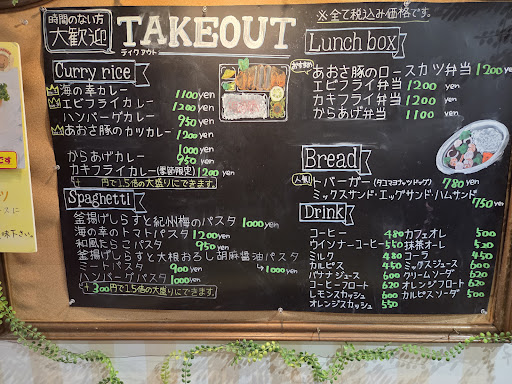 時間のない方
大歓迎
TAKEOUT
テイクアウト
※全て税込み価格です。
Curry rice
海の幸カレー 1100yen
エビフライカレー 1200yen
ハンバーグカレー 950yen
あおさ豚のカツカレー 1200yen
1000yen
からあげカレー 950yen
カキフライカレー(季節限定) 1200yen
円で1.5倍の大盛りにできます。
Spaghetti
釜揚げしらすと紀州梅のパスタ 1000yen
海の幸のトマトパスタ 1200yen
和風たらこパスタ 950yen
釜揚げしらすと大根おろし胡麻醤油パスタ
→1000yen
ミートパスタ 900yen
ハンバーグパスタ 1000yen
+300円で1.5倍の大盛りにできます。
Lunch box
あおさ豚のロースカツ弁当 1200yen
エビフライ弁当 1200yen
カキフライ弁当 1200yen
からあげ弁当 1100yen
Bread
人気! トバーガー(タコマヨナッツドッグ) 780yen
ミックスサンド・エッグサンド・ハムサンド 750yen
Drink
コーヒー 480 カフェオレ 500
ウインナーコーヒー 550 抹茶オーレ 520
ミルク 480 コーラ 450
カルピス 450 ミックスジュース 600
バナナジュース 600 クリームソーダ 620
コーヒーフロート 620 オレンジフロート 620
レモンスカッシュ 600 カルピスソーダ 500
オレンジスカッシュ 550
です